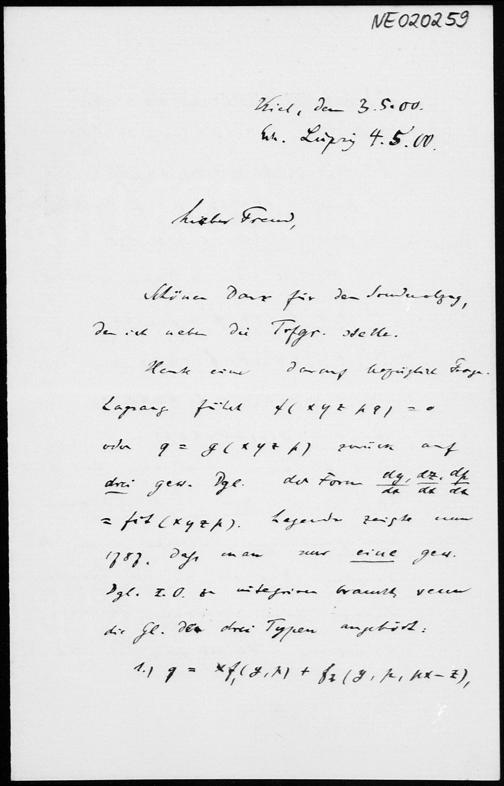 NE020259
Kiel, den 3.5.00.
Erh. Leipzig 4.5.00.
Lieber Freund,
Schönen Dank für den Sonderabzug,
den ich neben die Trfgr. stelle.
Heute eine darauf bezüglich Frage.
Lagrang führt f(x y z p q) = 0
oder q = g(x y z p) zurück auf
drei gew. Dgl. der Form dy/dx, dz/dx, dp/dx
= fkt (x y z p). Legendre zeigte nun
1787, daß man nur eine gew.
Dgl. 2.O. zu integriren braucht, wenn
die Gl. den drei Typen angehört:
1.) q = x f₁(y, p) + f₂(y, p, px − z),